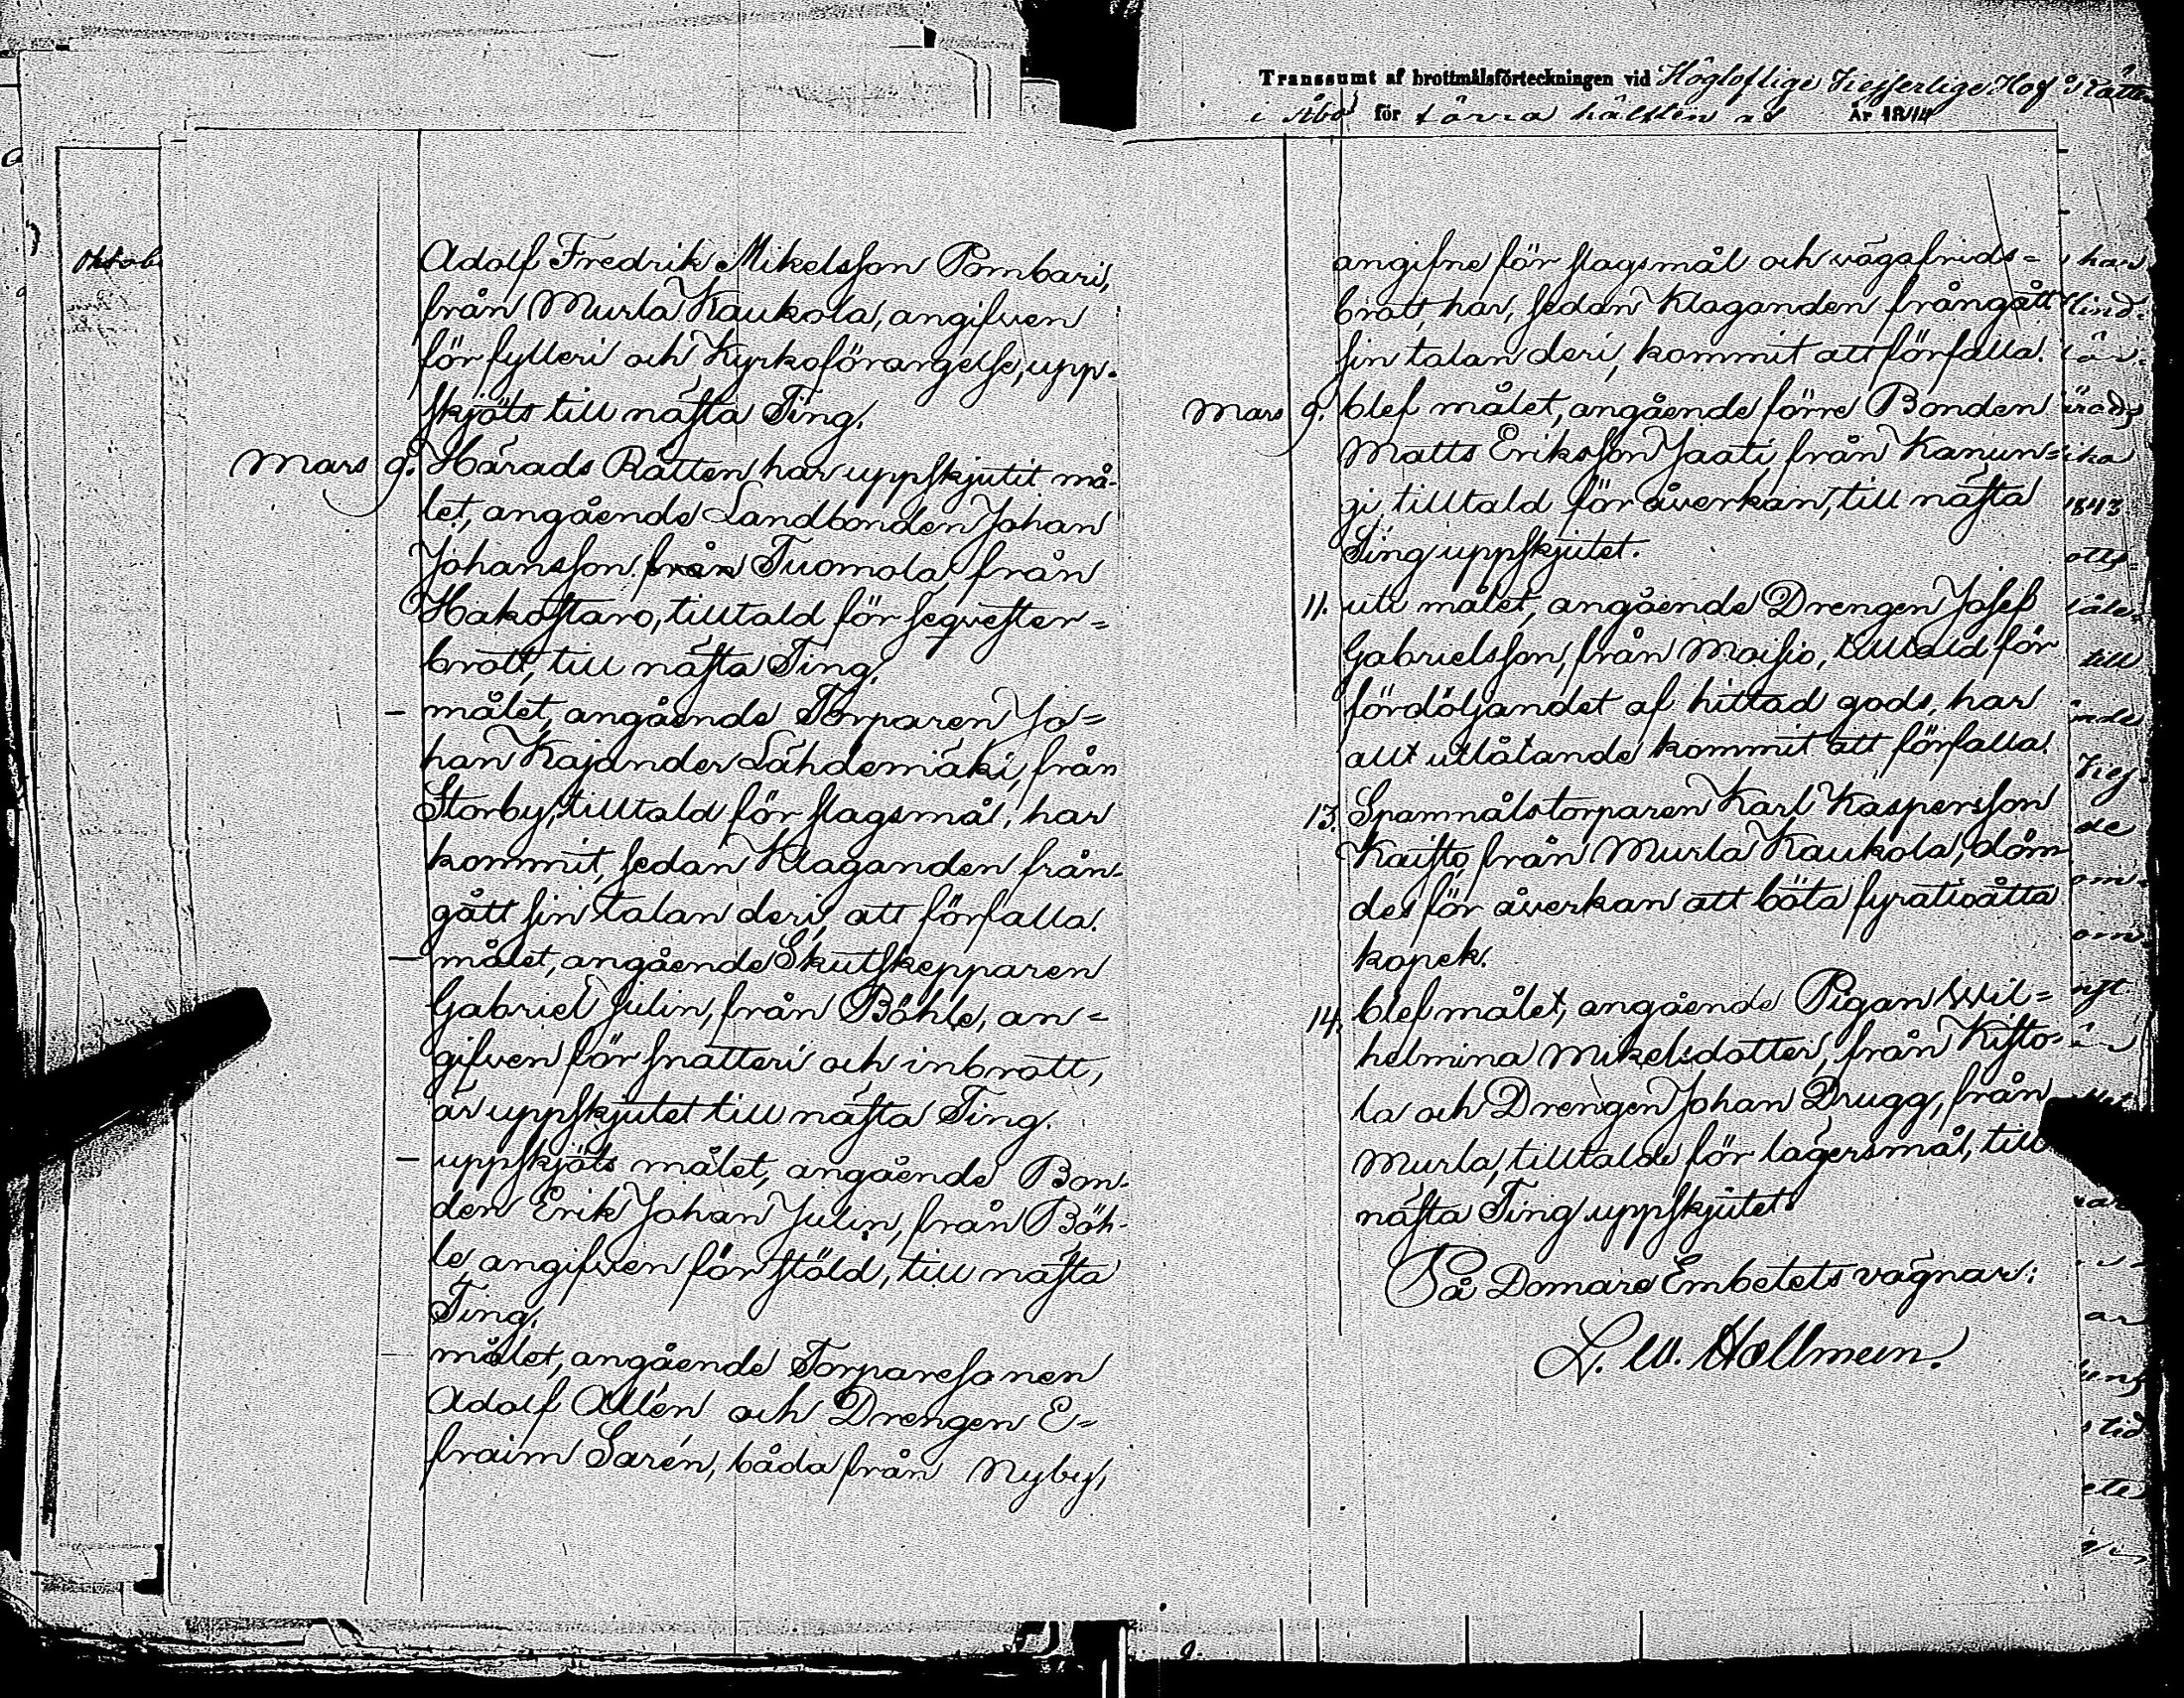 Transsumt af brottmålsförteckningen vid Högloflige Kejserlige Hof Rätten
i Åbo för förra hälften af År 1844
Adolf Fredrik Mikelsson Pombari,
från Murla Kaukola, angifven
för fylleri och Kyrkoförargelse, upp-
skjöts till nästa Ting.
Mars 9. Härads Rätten har uppskjutit må-
let, angående Landbonden Johan
Johansson från Tuomola, från
Hakostaro, tilltald för seqvester-
brott, till nästa Ting.
– målet, angående Torparen Jo-
han Kajander Lähdemäki, från
Storby, tilltald för slagsmål, har
kommit, sedan Klaganden från-
gått sin talan deri, att förfalla.
– målet, angående Skutskepparen
Gabriel Julin, från Böhle, an-
gifven för snatteri och inbrott,
är uppskjutet till nästa Ting.
– uppskjöts målet, angående Bon-
den Erik Johan Julin, från Böh-
le angifven för stöld, till nästa
Ting.
– målet, angående Torparesonen
Adolf Allén och Drengen E-
fraim Sarén, båda från Nyby,
angifne för slagsmål och vägafrids-
brott, har, sedan Klaganden frångått
sin talan deri, kommit att förfalla.
Mars 9. blef målet, angående förre Bonden
Matts Eriksson Jaati, från Kanun-
gi, tilltald för åverkan, till nästa
Ting uppskjutet.
11. uti målet, angående Drengen Josef
Gabrielsson, från Moisio, tilltald för
fördöljandet af hittad gods, har
allt utlåtande kommit att förfalla.
13. Spannmålstorparen Karl Kaspersson
Kaisto, från Murla Kaukola, döm-
des för åverkan att böta fyratioåtta
kopek.
14. blef målet, angående Pigan Wil-
helmina Mikelsdotter, från Kisto-
la och Drengen Johan Drugg, från
Murla, tilltalde för lägersmål, till
nästa Ting uppskjutet.
På Domare Embetets vägnar:
L. W. Hallmeen.